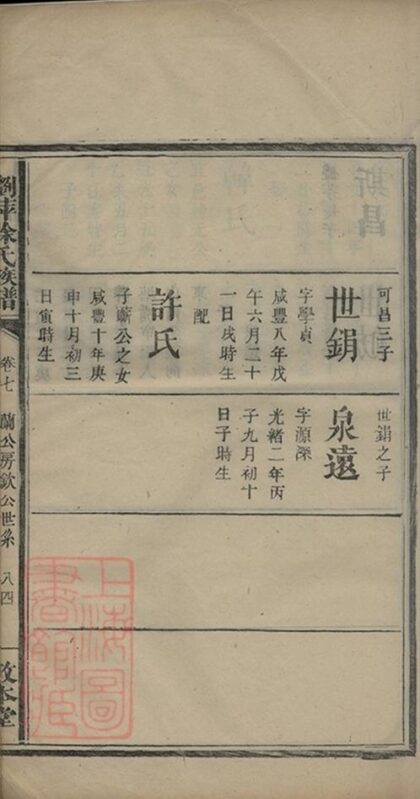 可昌三子
世鋗
字學貞
咸豐八年戊
午六月二十
一日戌時生
配
許氏
子蕭公之女
咸豐十年庚
申十月初三
日寅時生
世鋗之子
泉遠
字源深
光緒二年丙
子九月初十
日子時生
劉莊徐氏族譜
卷七
蘭公房欽公世系
八四
敦本堂
上海圖
書館藏
斯昌